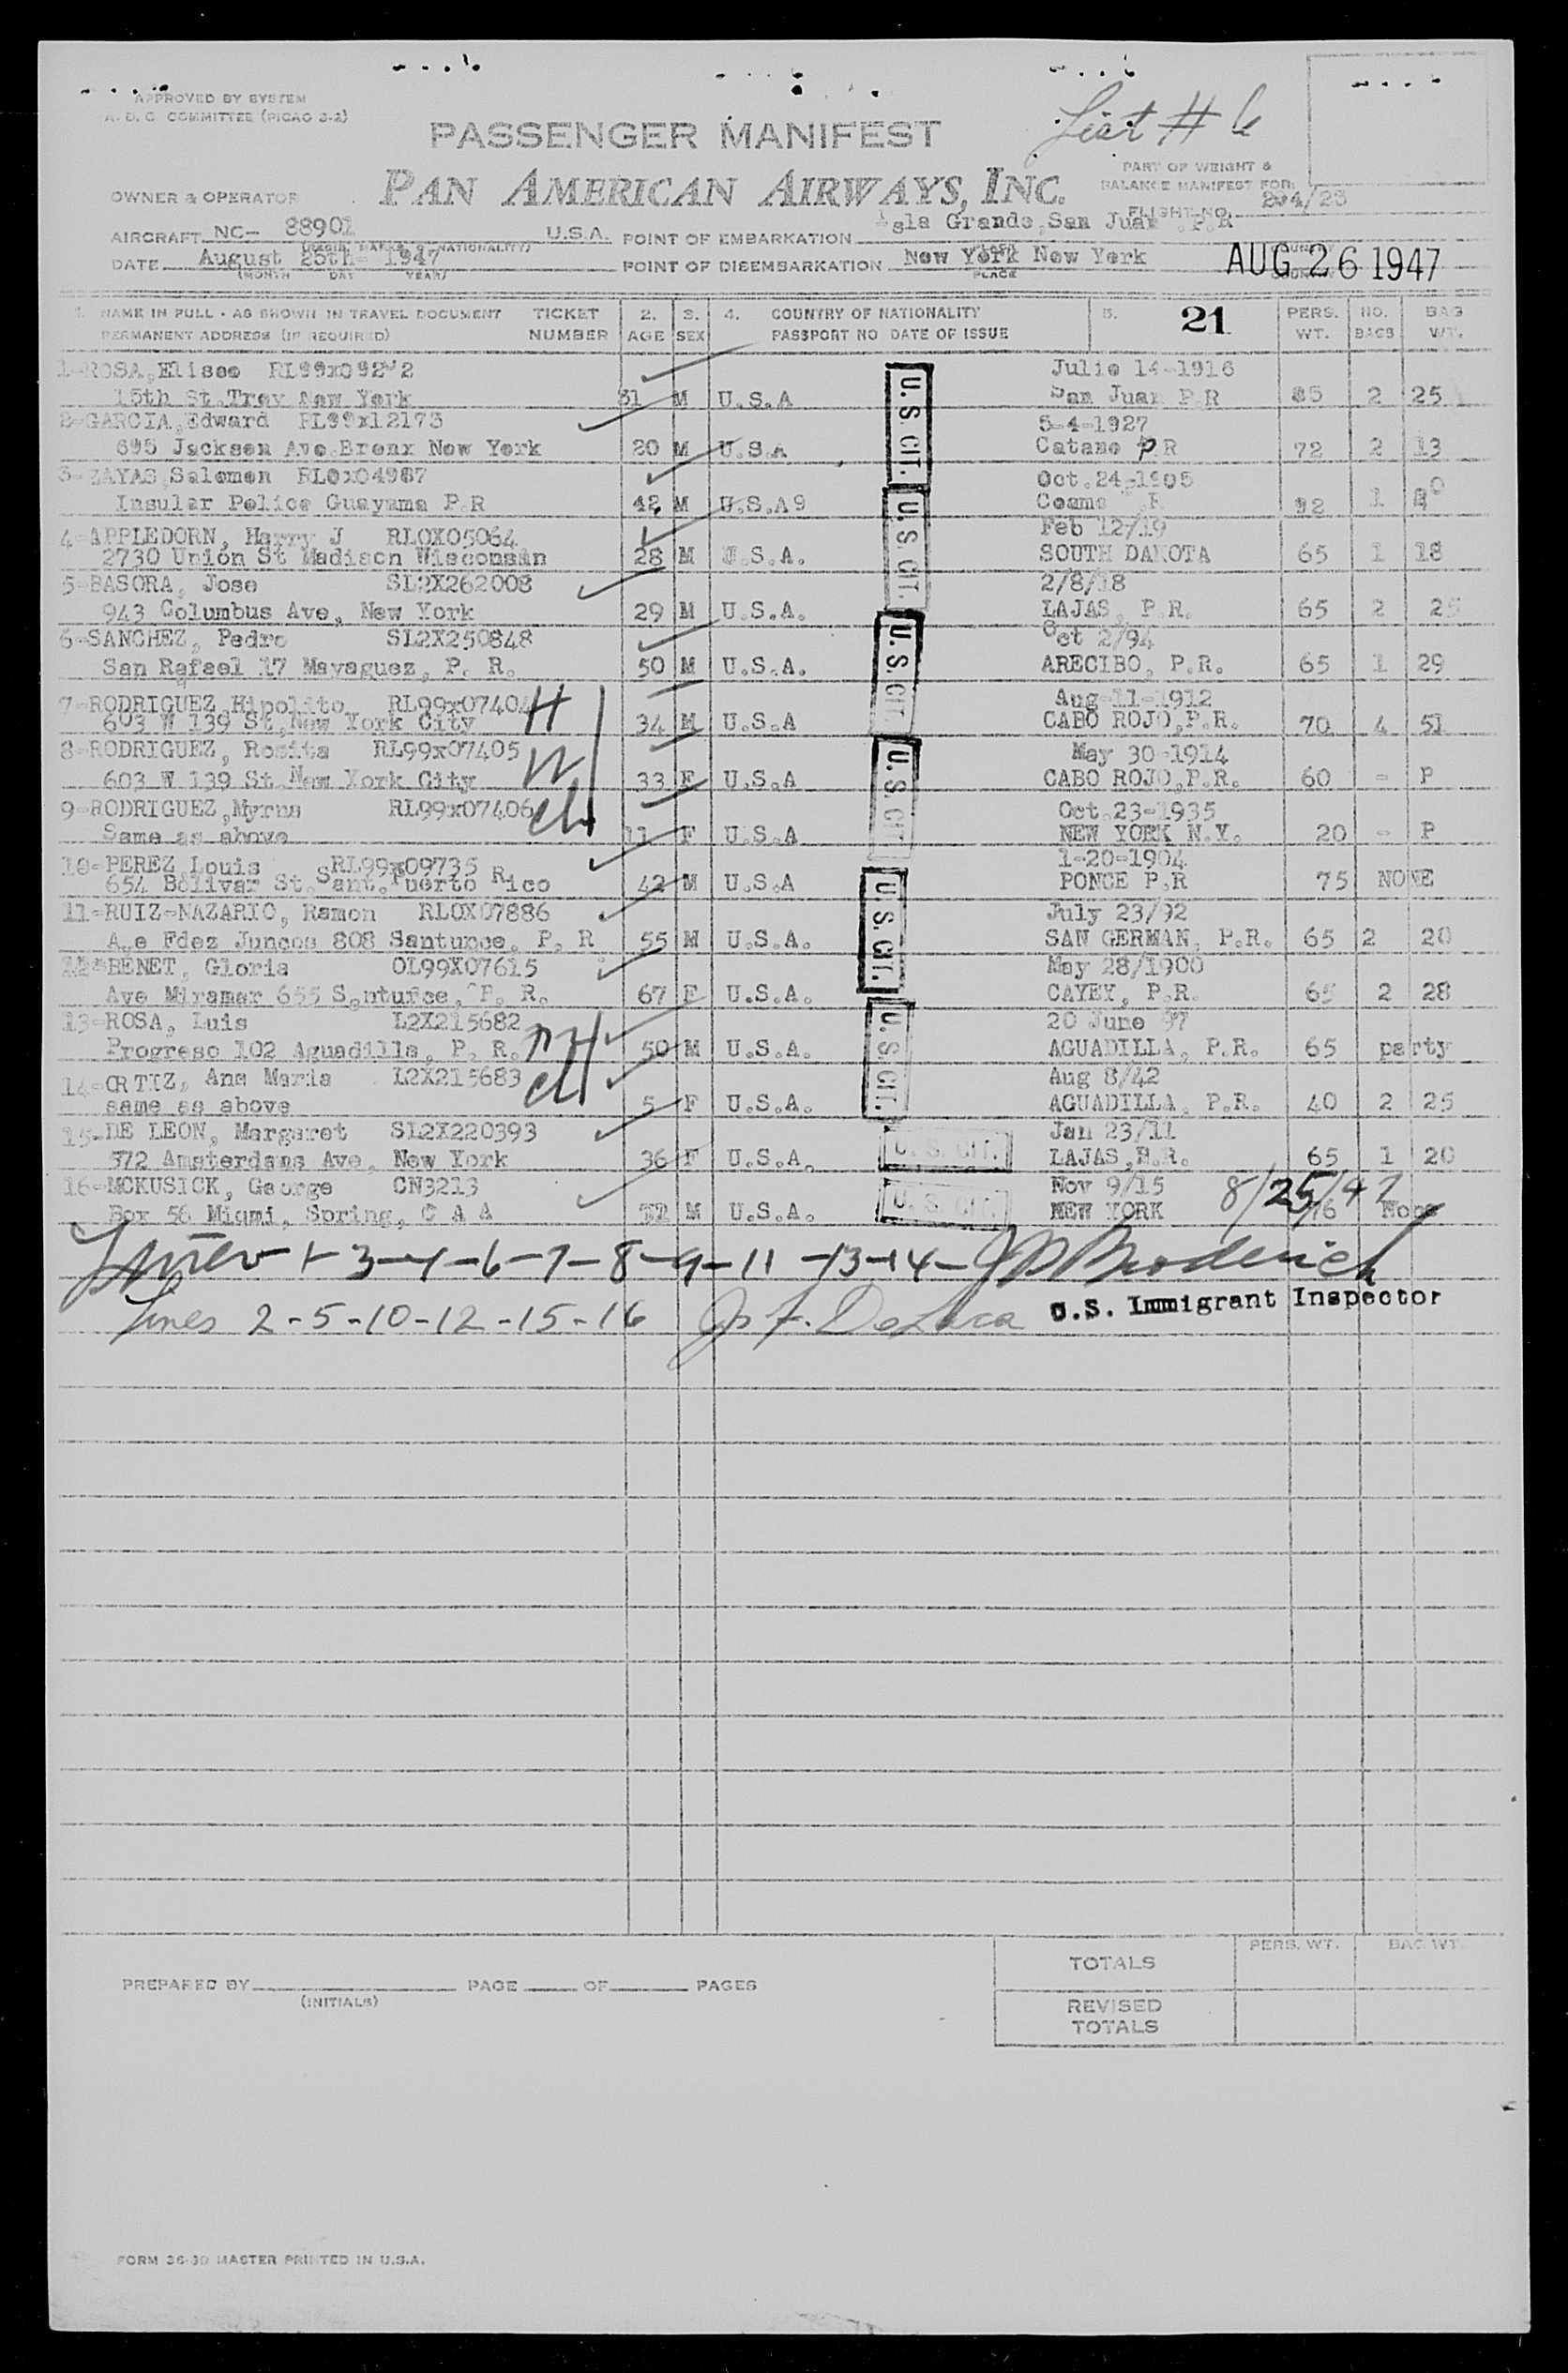 APPROVED BY SYSTEM
A. D. C COMMITTEE (PICAO 3-2)
List # 6
PASSENGER MANIFEST
PART OF WEIGHT &
BALANCE MANIFEST FOR
OWNER & OPERATOR PAN AMERICAN AIRWAYS, INC.
FLIGHT NO. 204/25
AIRCRAFT NC- 88901 U.S.A. POINT OF EMBARKATION Isla Grande, San Juan .P.R
DATE August 25th- 1947 POINT OF DISEMBARKATION New York New York AUG 26 1947
(MONTH DAY YEAR) PLACE
1. NAME IN FULL - AS SHOWN IN TRAVEL DOCUMENT TICKET 2. 3. 4. COUNTRY OF NATIONALITY 5. 21 PERS. NO. BAG
PERMANENT ADDRESS (IF REQUIRED) NUMBER AGE SEX PASSPORT NO DATE OF ISSUE WT. BAGS WT.
1-ROSA,Eliseo Julio 14-1916
15th St.Troy New York 31 M U.S.A San Juan P.R 2 25
2-GARCIA,Edward RL99x12173 5-4-1927
695 Jackson Ave.Bronx New York 20 M U.S.A Catano P.R 72 2 13
3-ZAYAS,Salomon RL0x04987 Oct.24-1905
Insular Police Guayama P.R 42 M U.S.A9 Coamo .R 92 1
4-APPLEDORN, Harry J RLOX05064 Feb 12/19
2730 Union St Madison Wisconsin 28 M U.S.A. SOUTH DAKOTA 65 1 18
5-BASORA, Jose SL2X262008 2/8/18
943 Columbus Ave, New York 29 M U.S.A. LAJAS, P.R. 65 2 25
6-SANCHEZ, Pedro SL2X250848 Oct 2/94
San Rafael 17 Mayaguez, P. R. 50 M U.S.A. ARECIBO, P.R. 65 1 29
7-RODRIGUEZ,Hipolito RL99x07404 H Aug-11-1912
603 W 139 St,New York City 34 M U.S.A CABO ROJO,P.R. 70 4 51
8-RODRIGUEZ, Rosita RL99x07405 W May 30-1914
603 W 139 St.New York City 33 F U.S.A CABO ROJO,P.R. 60 - P
9-RODRIGUEZ,Myrna RL99x07406 ch Oct.23-1935
Same as above 11 F U.S.A NEW YORK N.Y. 20 - P
10-PEREZ Louis RL99x09735 1-20-1904
654 Bolivar St.Sant.Puerto Rico 42 M U.S.A PONCE P.R 75 NONE
11-RUIZ-NAZARIO, Ramon RLOX07886 July 23/92
Ave Fdez Juncos 808 Santurce, P. R 55 M U.S.A. SAN GERMAN, P.R. 65 2 20
12-BENET, Gloria OL99X07615 May 28/1900
Ave Miramar 655 Santurce, P. R. 67 F U.S.A. CAYEY, P.R. 65 2 28
13-ROSA, Luis L2X215682 20 June 97
Progreso 102 Aguadilla, P. R. 50 M U.S.A. AGUADILLA, P.R. 65 party
14-ORTIZ, Ana Maria L2X215683 ch Aug 8/42
same as above 5 F U.S.A. AGUADILLA, P.R. 40 2 25
15-DE LEON, Margaret SL2X220393 Jan 23/11
572 Amsterdams Ave, New York 36 F U.S.A. LAJAS,P.R. 65 1 20
16-MCKUSICK, George CN3213 Nov 9/15 8/25/47
Box 56 Miami, Spring, C A A M U.S.A. NEW YORK 76 None
U.S. CIT.
U.S. CIT.
U.S. CIT.
U.S. CIT.
U.S. CIT.
U.S. CIT.
U. S. CIT.
U. S. CIT.
Lines 1-3-4-6-7-8-9-11-13-14- JP Broderick
U.S. Immigrant Inspector
Lines 2-5-10-12-15-16
PREPARED BY (INITIALS) PAGE OF PAGES
TOTALS PERS. WT. BAG WT.
REVISED TOTALS
FORM 36-30 MASTER PRINTED IN U.S.A.